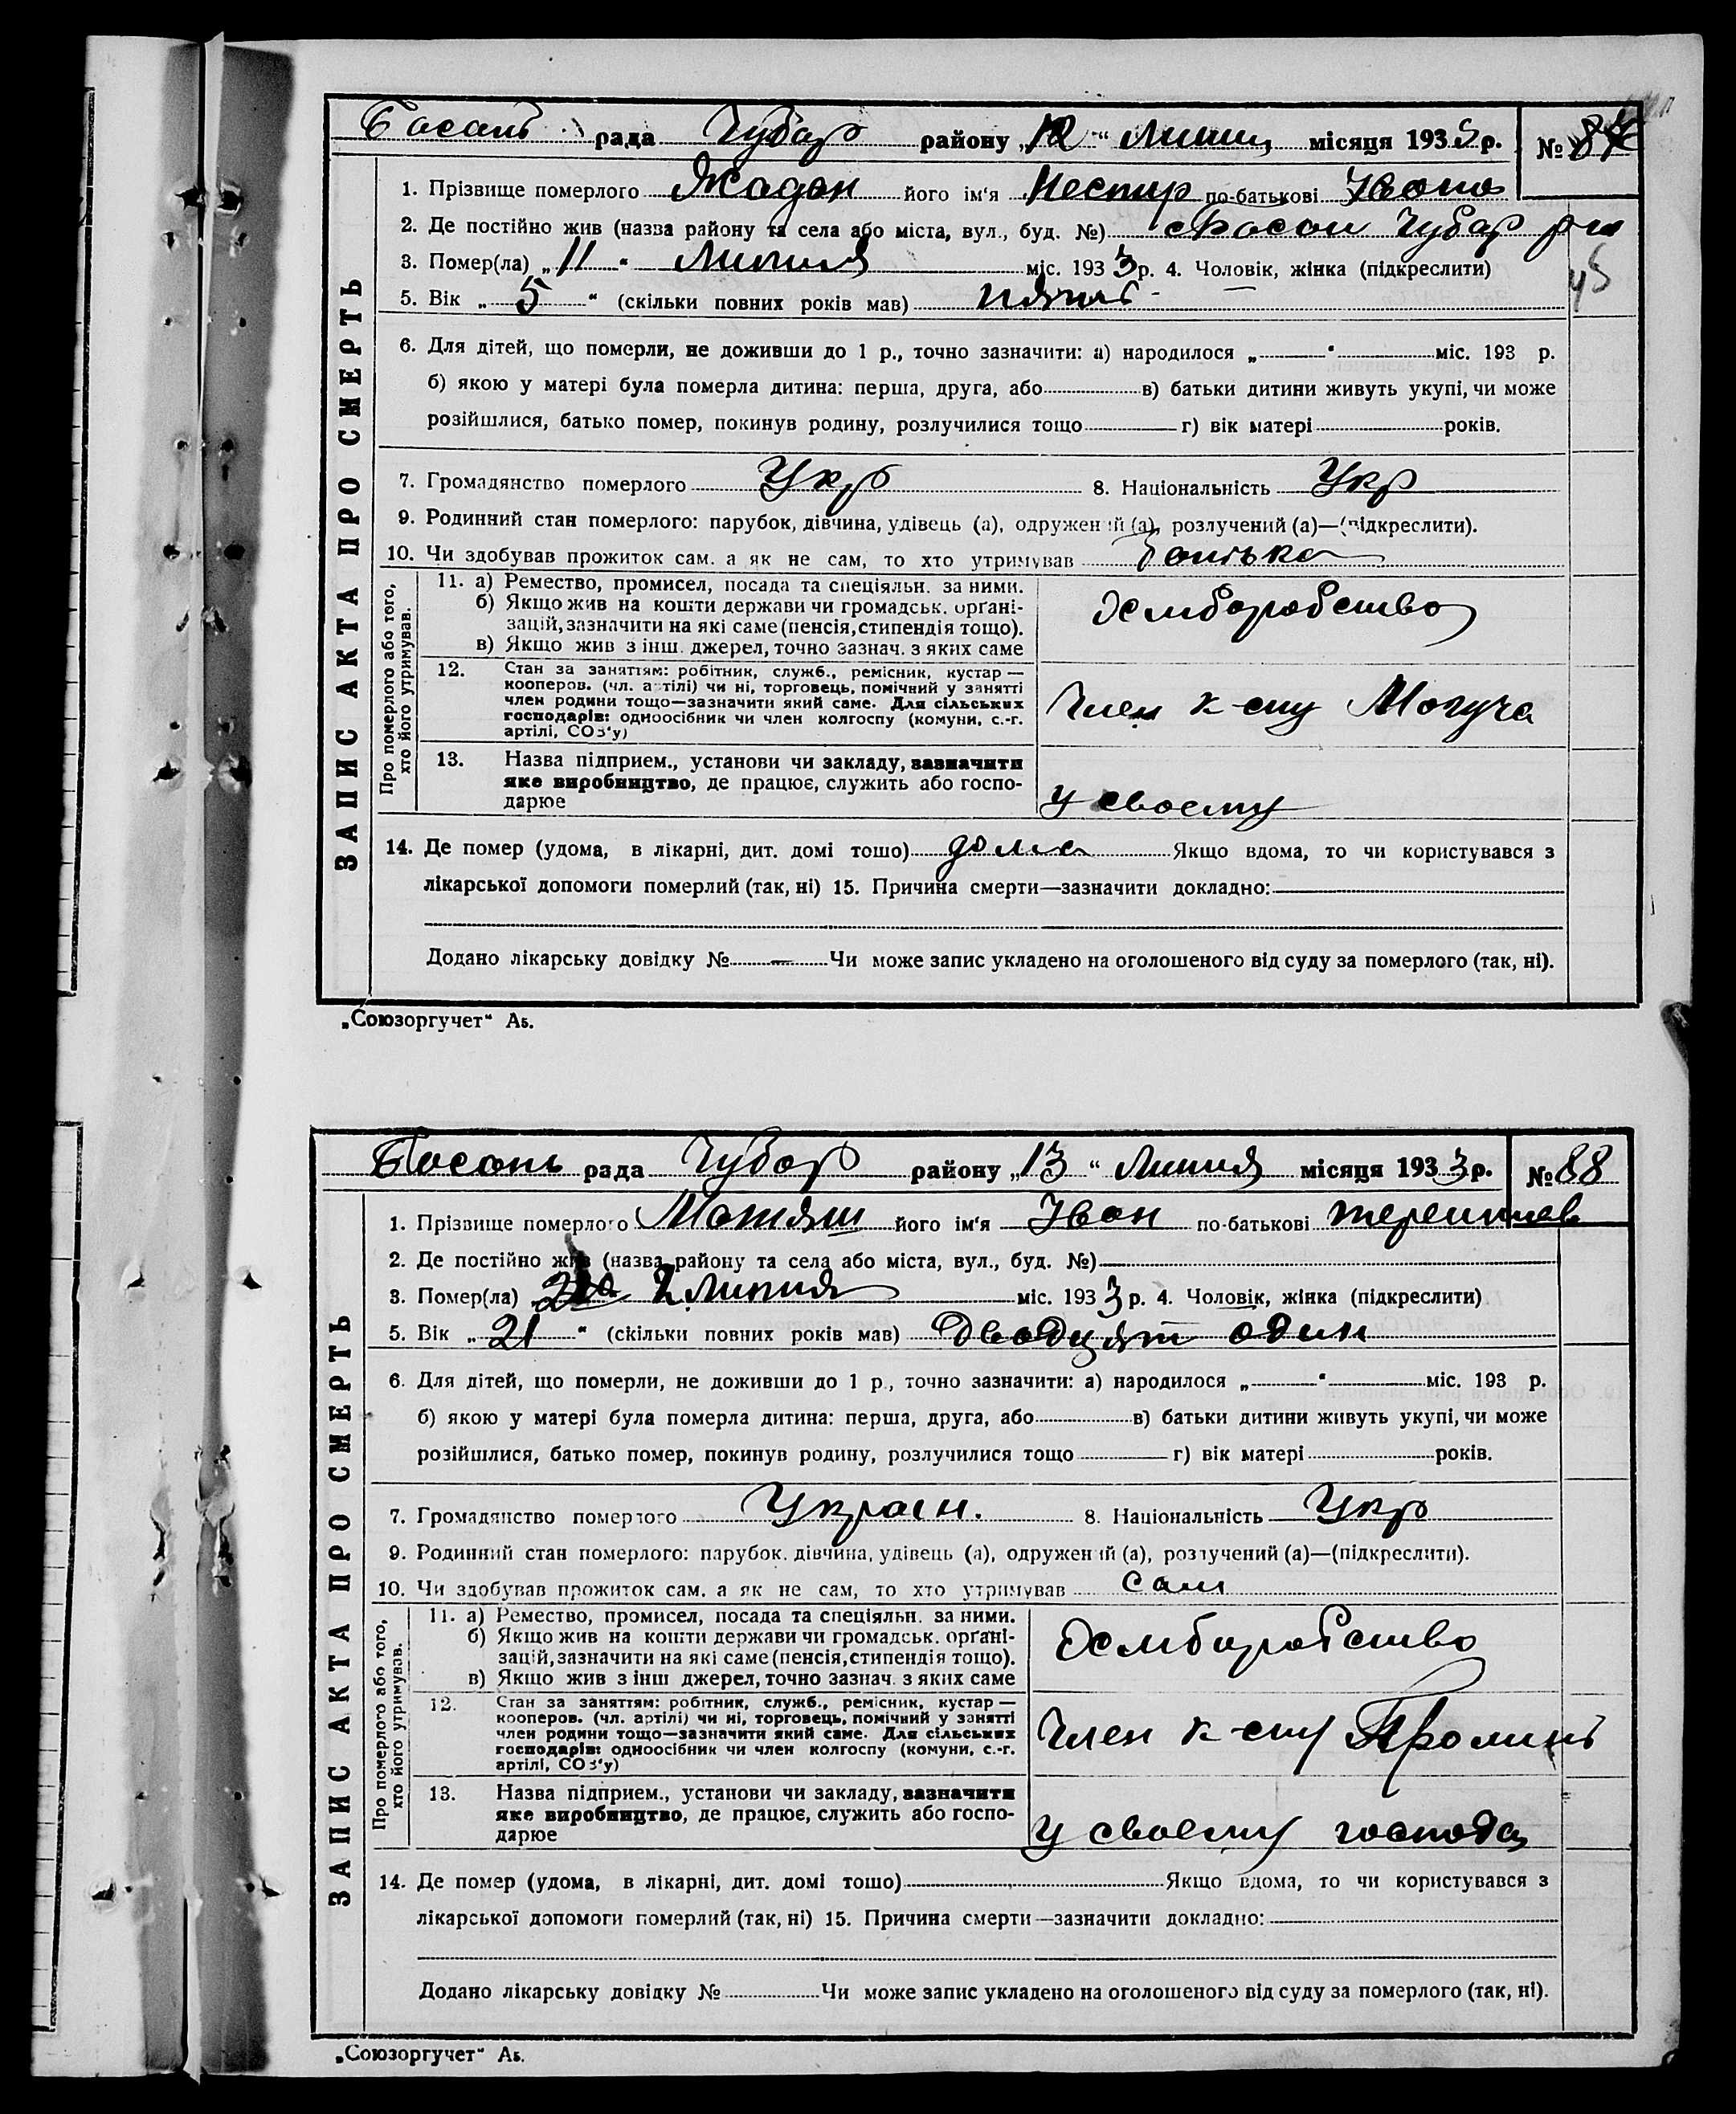 Басань рада Чубар району „12“ Липня місяця 1933 р. № 87
ЗАПИС АКТА ПРО СМЕРТЬ
1. Прізвище померлого Жадан його ім‘я Нестир по-батькові Іванов
2. Де постійно жив (назва району та села або міста, вул., буд. №) с Басан Чубар р-н
3. Помер(ла) „11“ Липня міс. 1933 р. 4. Чоловік, жінка (підкреслити)
45
5. Вік „5“ (скільки повних років мав) пять
6. Для дітей, що померли, не доживши до 1 р., точно зазначити: а) народилося „ “ міс. 193 р.
б) якою у матері була померла дитина: перша, друга, або в) батьки дитини живуть укупі, чи може
розійшлися, батько помер, покинув родину, розлучилися тощо г) вік матері років.
7. Громадянство померлого Укр 8. Національність Укр
9. Родинний стан померлого: парубок, дівчина, удівець (а), одружений (а), розлучений (а)—(підкреслити).
10. Чи здобував прожиток сам. а як не сам, то хто утримував батько
Про померлого або того, хто його утримував.
11. а) Ремество, промисел, посада та спеціяльн. за ними.
б) Якщо жив на кошти держави чи громадськ. орґані-
зацій, зазначити на які саме (пенсія, стипендія тощо).
в) Якщо жив з інш. джерел, точно зазнач. з яких саме
Хлиборобство
12. Стан за заняттям: робітник, служб., ремісник, кустар —
кооперов. (чл. артілі) чи ні, торговець, помічний у занятті
член родини тощо—зазначити який саме. Для сільських
господарів: одноосібник чи член колгоспу (комуни, с.-г.
артілі, СОЗ‘у)
Член к-спу Могуча
13. Назва підприєм., установи чи закладу, зазначити
яке виробництво, де працює, служить або госпо-
дарює
у своему
14. Де помер (удома, в лікарні, дит. домі тошо) дома Якщо вдома, то чи користувався з
лікарської допомоги померлий (так, ні) 15. Причина смерти—зазначити докладно:
Додано лікарську довідку № — Чи може запис укладено на оголошеного від суду за померлого (так, ні).
„Союзоргучет“ Аб.
Басань рада Чубар району „13“ Липня місяця 1933 р. № 88
ЗАПИС АКТА ПРО СМЕРТЬ
1. Прізвище померлого Матяш його ім‘я Іван по-батькові терентиев
2. Де постійно жив (назва району та села або міста, вул., буд. №)
3. Помер(ла) 2 Липня міс. 1933 р. 4. Чоловік, жінка (підкреслити)
5. Вік „21“ (скільки повних років мав) Двадцят один
6. Для дітей, що померли, не доживши до 1 р., точно зазначити: а) народилося „ “ міс. 193 р.
б) якою у матері була померла дитина: перша, друга, або в) батьки дитини живуть укупі, чи може
розійшлися, батько помер, покинув родину, розлучилися тощо г) вік матері років.
7. Громадянство померлого Украин. 8. Національність Укр
9. Родинний стан померлого: парубок. дівчина, удівець (а), одружений (а), розлучений (а)—(підкреслити).
10. Чи здобував прожиток сам. а як не сам, то хто утримував сам
Про померлого або того, хто його утримував.
11. а) Ремество, промисел, посада та спеціяльн. за ними.
б) Якщо жив на кошти держави чи громадськ. орґані-
зацій, зазначити на які саме (пенсія, стипендія тощо).
в) Якщо жив з інш джерел, точно зазнач. з яких саме
Хлиборобство
12. Стан за заняттям: робітник, служб., ремісник, кустар —
кооперов. (чл. артілі) чи ні, торговець, помічний у занятті
член родини тощо—зазначити який саме. Для сільських
господарів: одноосібник чи член колгоспу (комуни, с.-г.
артілі, СОЗ‘у)
Член к-спу Проминь
13. Назва підприєм., установи чи закладу, зазначити
яке виробництво, де працює, служить або госпо-
дарює
у своему господа
14. Де помер (удома, в лікарні, дит. домі тошо) Якщо вдома, то чи користувався з
лікарської допомоги померлий (так, ні) 15. Причина смерти—зазначити докладно:
Додано лікарську довідку № Чи може запис укладено на оголошеного від суду за померлого (так, ні).
„Союзоргучет“ Аб.